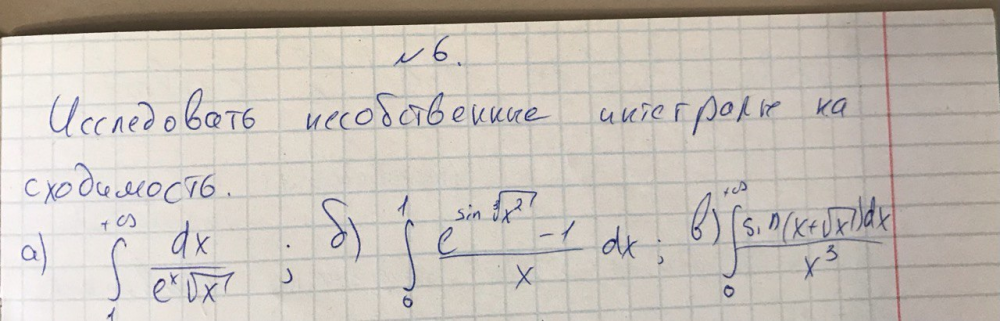 № 6.
Исследовать несобственные интегралы на
сходимость.
а) ∫₁^{+∞} dx / (eˣ√x) ; б) ∫₀^1 (e^{sin ∛(x²)} - 1) / x dx ; в) ∫₀^{+∞} sin(x+√x)dx / x³